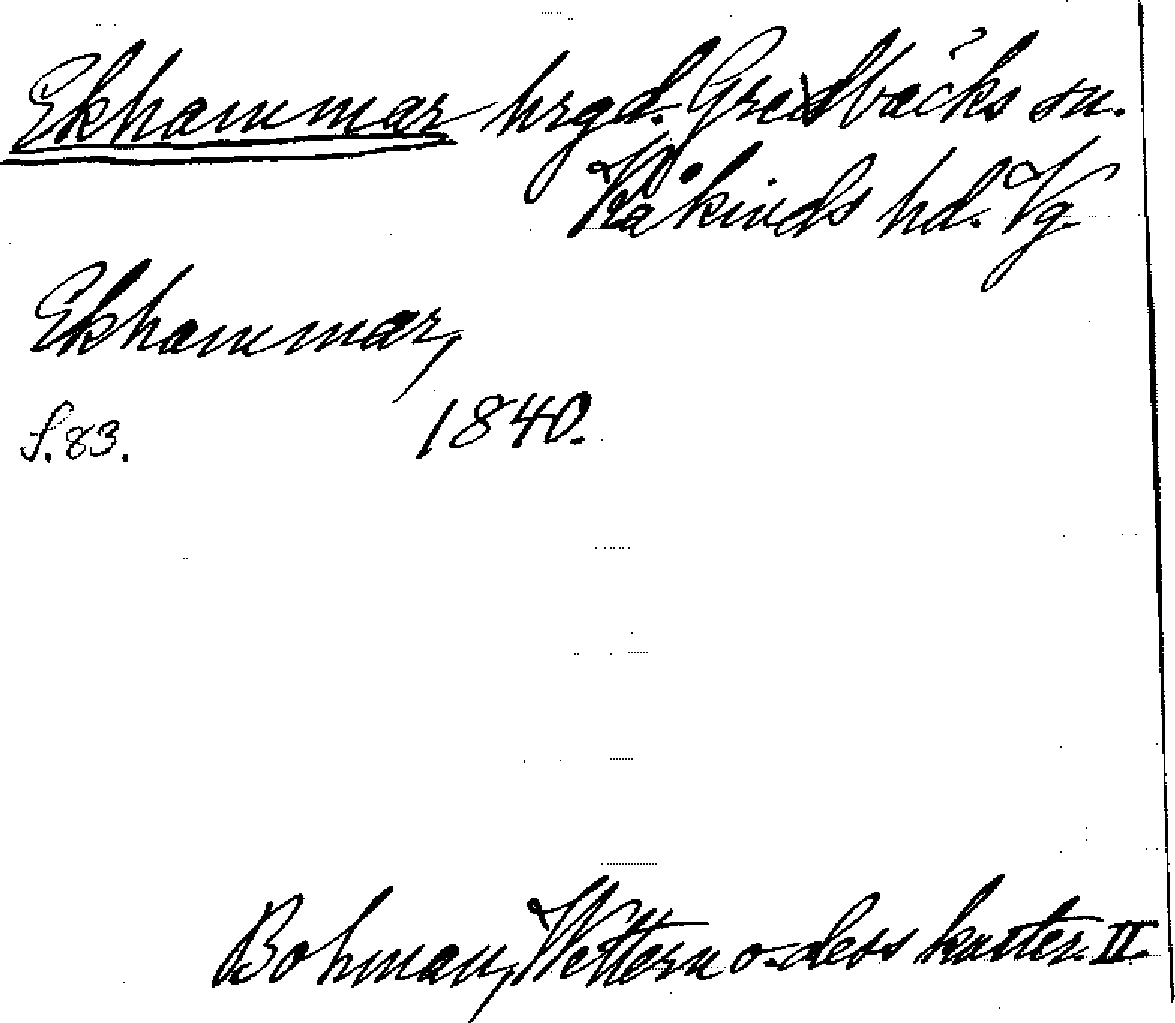 Ekhammar hrgd. Gredbäcks sn.
Kåkinds hd. Vg.
Ekhammar,
S. 83. 1840.
Bohman, Wettern o. dess kuster. II.